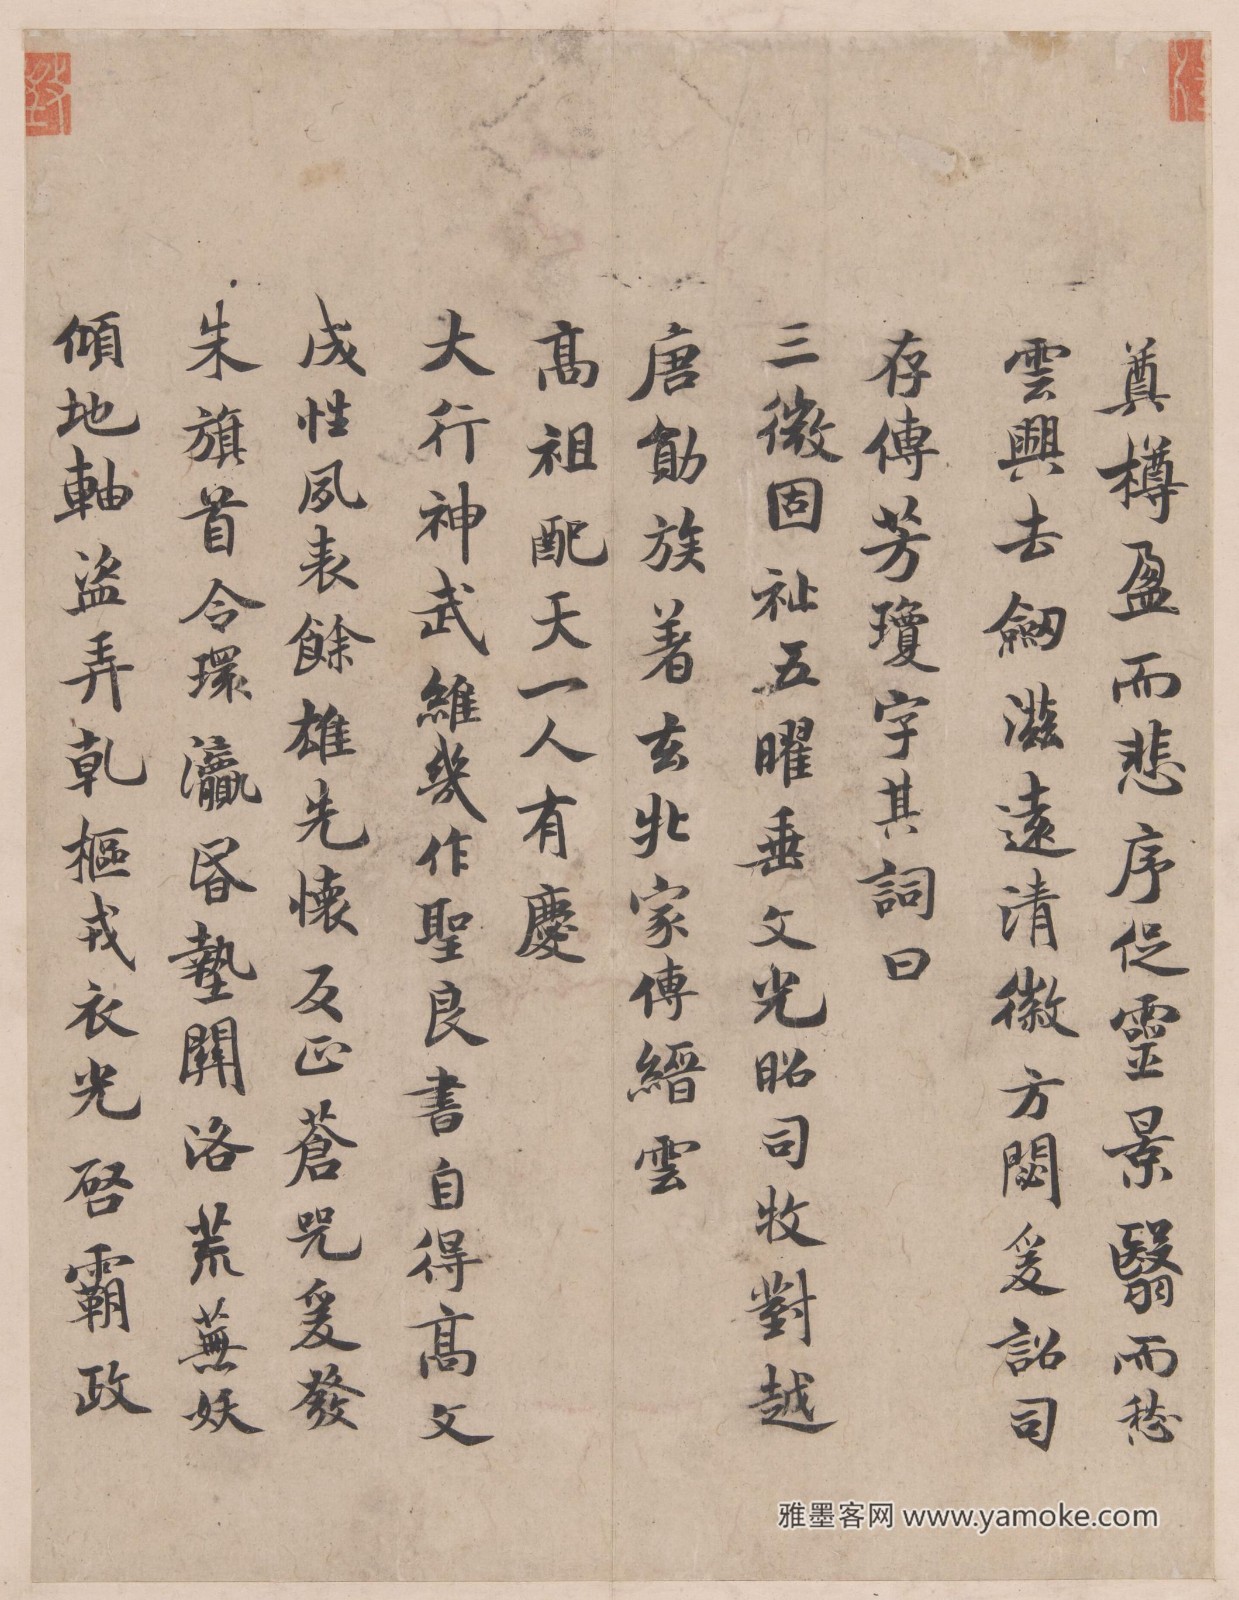 奠樽盈而悲序促靈景翳而愁
雲興去劒滋遠清徽方閟爰詔司
存傳芳瓊字其詞曰
三微固祉五曜垂文光昭司牧對越
唐勛族著玄北家傳縉雲
高祖配天一人有慶
大行神武維幾作聖良書自得高文
成性夙表餘雄先懷反正蒼咒爰發
朱旗首令環瀛昏墊關洛荒蕪妖
傾地軸盜弄乾樞戎衣光啓霸政
雅墨客网 www.yamoke.com